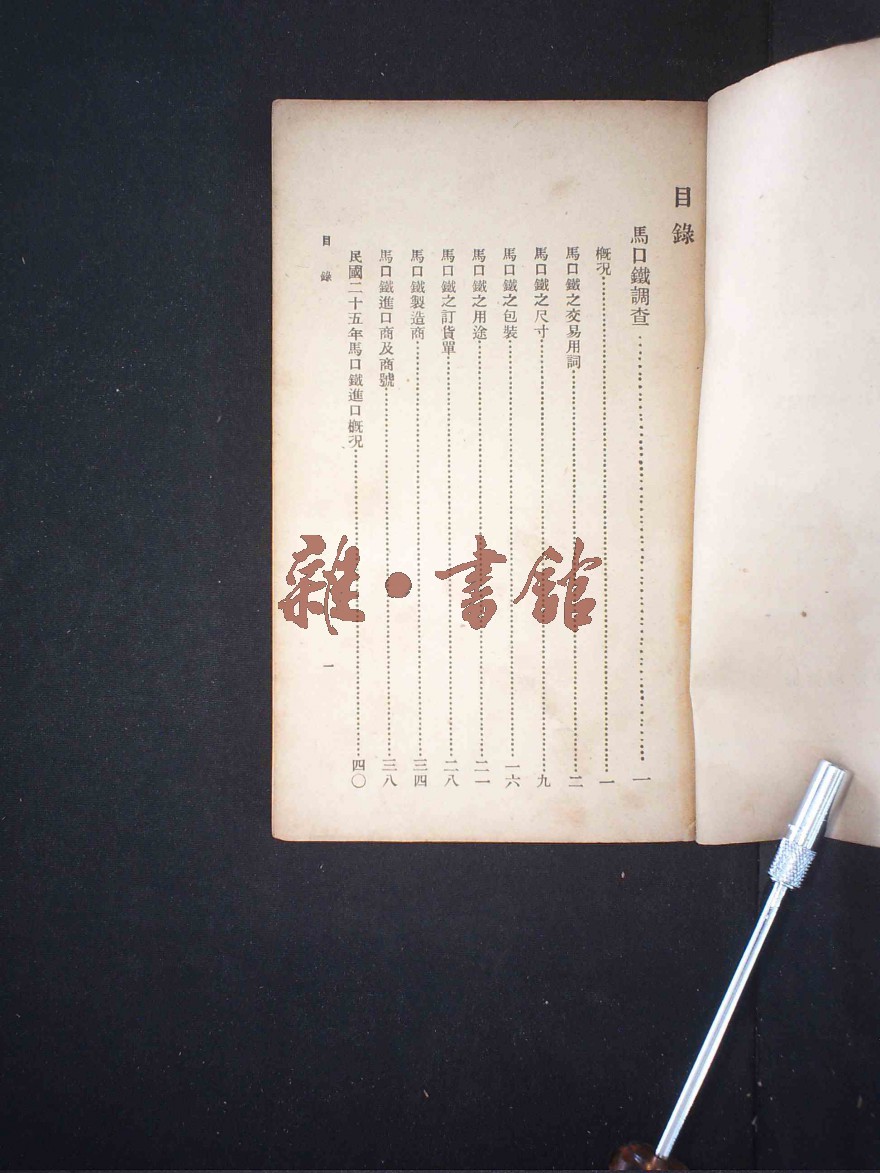 目錄
馬口鐵調查……一
概況……一
馬口鐵之交易用詞……二
馬口鐵之尺寸……九
馬口鐵之包裝……一六
馬口鐵之用途……二一
馬口鐵之訂貨單……二八
馬口鐵製造商……三四
馬口鐵進口商及商號……三八
民國二十五年馬口鐵進口概況……四〇
目錄
一
雜·書館